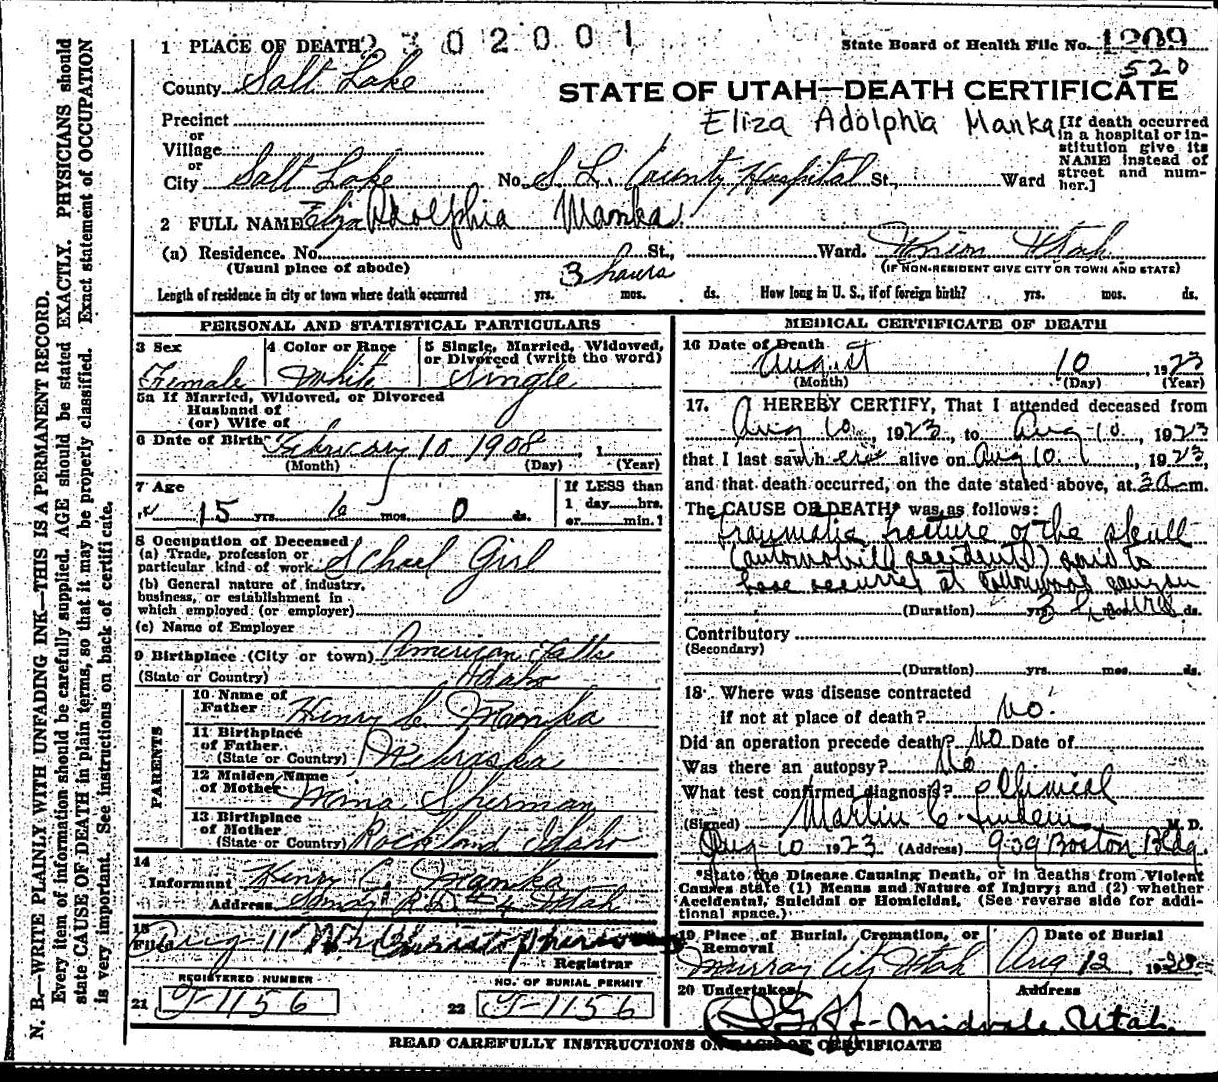 1 PLACE OF DEATH 2302001
State Board of Health File No. 1209
520
County Salt Lake
STATE OF UTAH—DEATH CERTIFICATE
Precinct
Eliza Adolphia Manka
[If death occurred in a hospital or institution give its NAME instead of street and number.]
or
Village
or
City Salt Lake No. S. L. County Hospital St., Ward
2 FULL NAME Eliza Adolphia Manka
(a) Residence. No. St., Ward. Union Utah
(Usual place of abode) (IF NON-RESIDENT GIVE CITY OR TOWN AND STATE)
3 hours
Length of residence in city or town where death occurred yrs. mos. ds. How long in U. S., if of foreign birth? yrs. mos. ds.
PERSONAL AND STATISTICAL PARTICULARS
3 Sex 4 Color or Race 5 Single, Married, Widowed, or Divorced (write the word)
Female White Single
5a If Married, Widowed, or Divorced
Husband of
(or) Wife of
6 Date of Birth February 10 1908, 1
(Month) (Day) (Year)
7 Age If LESS than
15 yrs. 6 mos. 0 ds. 1 day hrs.
or min.?
8 Occupation of Deceased
(a) Trade, profession or
particular kind of work School Girl
(b) General nature of industry,
business, or establishment in
which employed (or employer)
(c) Name of Employer
9 Birthplace (City or town) American Falls
(State or Country) Idaho
PARENTS
10 Name of
Father Henry C. Manka
11 Birthplace
of Father
(State or Country) Nebraska
12 Maiden Name
of Mother Sherman
13 Birthplace
of Mother
(State or Country) Rockland Idaho
14
Informant Henry C. Manka
Address Sandy R.D. Utah
15
Filed Aug 11
Registrar
REGISTERED NUMBER NO. OF BURIAL PERMIT
21 J-1156 22 J-1156
MEDICAL CERTIFICATE OF DEATH
16 Date of Death
August 10, 1923
(Month) (Day) (Year)
17. I HEREBY CERTIFY, That I attended deceased from
Aug 10, 1923, to Aug 10, 1923
that I last saw her alive on Aug 10, 1923,
and that death occurred, on the date stated above, at 3 a m.
The CAUSE OF DEATH* was as follows:
traumatic fracture of the skull
(automobile accident) said to
have occurred at Cottonwood canyon
(Duration) yrs. 3 hours ds.
Contributory
(Secondary)
(Duration) yrs. mos. ds.
18 Where was disease contracted
if not at place of death? No.
Did an operation precede death? No Date of
Was there an autopsy? No
What test confirmed diagnosis? Clinical
(Signed) Martin C. Lindem M. D.
Aug 10 1923 (Address) 939 Boston Bldg.
*State the Disease Causing Death, or in deaths from Violent
Causes state (1) Means and Nature of Injury; and (2) whether
Accidental, Suicidal or Homicidal. (See reverse side for additional space.)
19 Place of Burial, Cremation, or Removal Date of Burial
Murray City Utah Aug 12 1923
20 Undertaker Address
Midvale, Utah.
READ CAREFULLY INSTRUCTIONS ON BACK OF CERTIFICATE
N. B.—WRITE PLAINLY WITH UNFADING INK—THIS IS A PERMANENT RECORD.
Every item of information should be carefully supplied. AGE should be stated EXACTLY. PHYSICIANS should
state CAUSE OF DEATH in plain terms, so that it may be properly classified. Exact statement of OCCUPATION
is very important. See instructions on back of certificate.